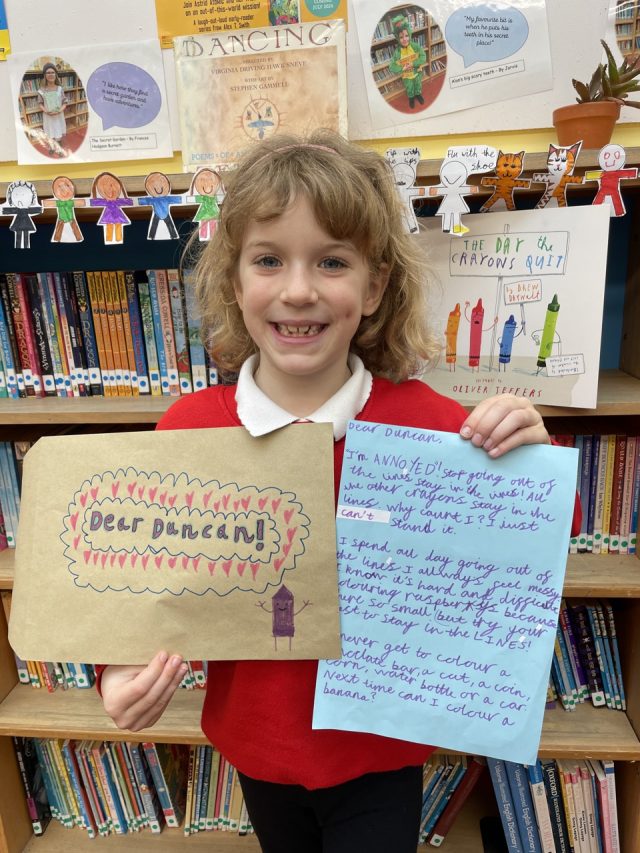 Join Astrid Atkins and
on an out-of-this-world mission!
A laugh-out-loud early-reader
series from Alex T. Smith
COMING
JULY
"I like how they find
a secret garden and
have adventures."
The Secret Garden by Frances
Hodgson Burnett
DANCING
DIRECTED BY
VIRGINIA DRIVING HAWK SNEVE
WITH ART BY
STEPHEN GAMMELL
POEMS
"My favourite bit is
when he puts his
teeth in his secret
place"
Alan's big scary teeth - By Jarvis
Flu with the
shoe
THE DAY the
CRAYONS QUIT
by
DREW
DAYWALT
OLIVER JEFFERS
Dear Duncan!
Dear Duncan,
"I'm ANNOYED"! Stop going out of
the lines stay in the lines! All
the other crayons stay in the
lines why caunt I? I just
can't stand it.
I spend all day going out of
the lines I allways feel messy
I know it's hard and difficulte
colouring raspberrys because
there so small but try your
best to stay in the LINES!
never get to colour a
choclate bar, a cut, a coin,
corn, water bottle or a car.
Next time can I colour a
banana?